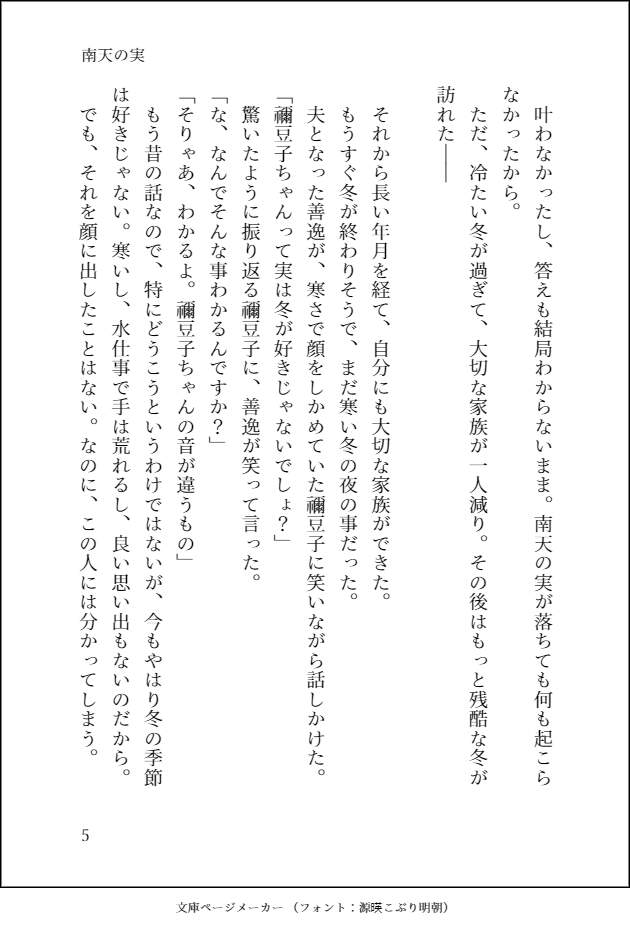 南天の実
叶わなかったし、答えも結局わからないまま。南天の実が落ちても何も起こら
なかったから。
ただ、冷たい冬が過ぎて、大切な家族が一人減り。その後はもっと残酷な冬が
訪れた――
それから長い年月を経て、自分にも大切な家族ができた。
もうすぐ冬が終わりそうで、まだ寒い冬の夜の事だった。
夫となった善逸が、寒さで顔をしかめていた禰豆子に笑いながら話しかけた。
「禰豆子ちゃんって実は冬が好きじゃないでしょ？」
驚いたように振り返る禰豆子に、善逸が笑って言った。
「な、なんでそんな事わかるんですか？」
「そりゃあ、わかるよ。禰豆子ちゃんの音が違うもの」
もう昔の話なので、特にどうこうというわけではないが、今もやはり冬の季節
は好きじゃない。寒いし、水仕事で手は荒れるし、良い思い出もないのだから。
でも、それを顔に出したことはない。なのに、この人には分かってしまう。
5
文庫ページメーカー（フォント：源暎こぶり明朝）